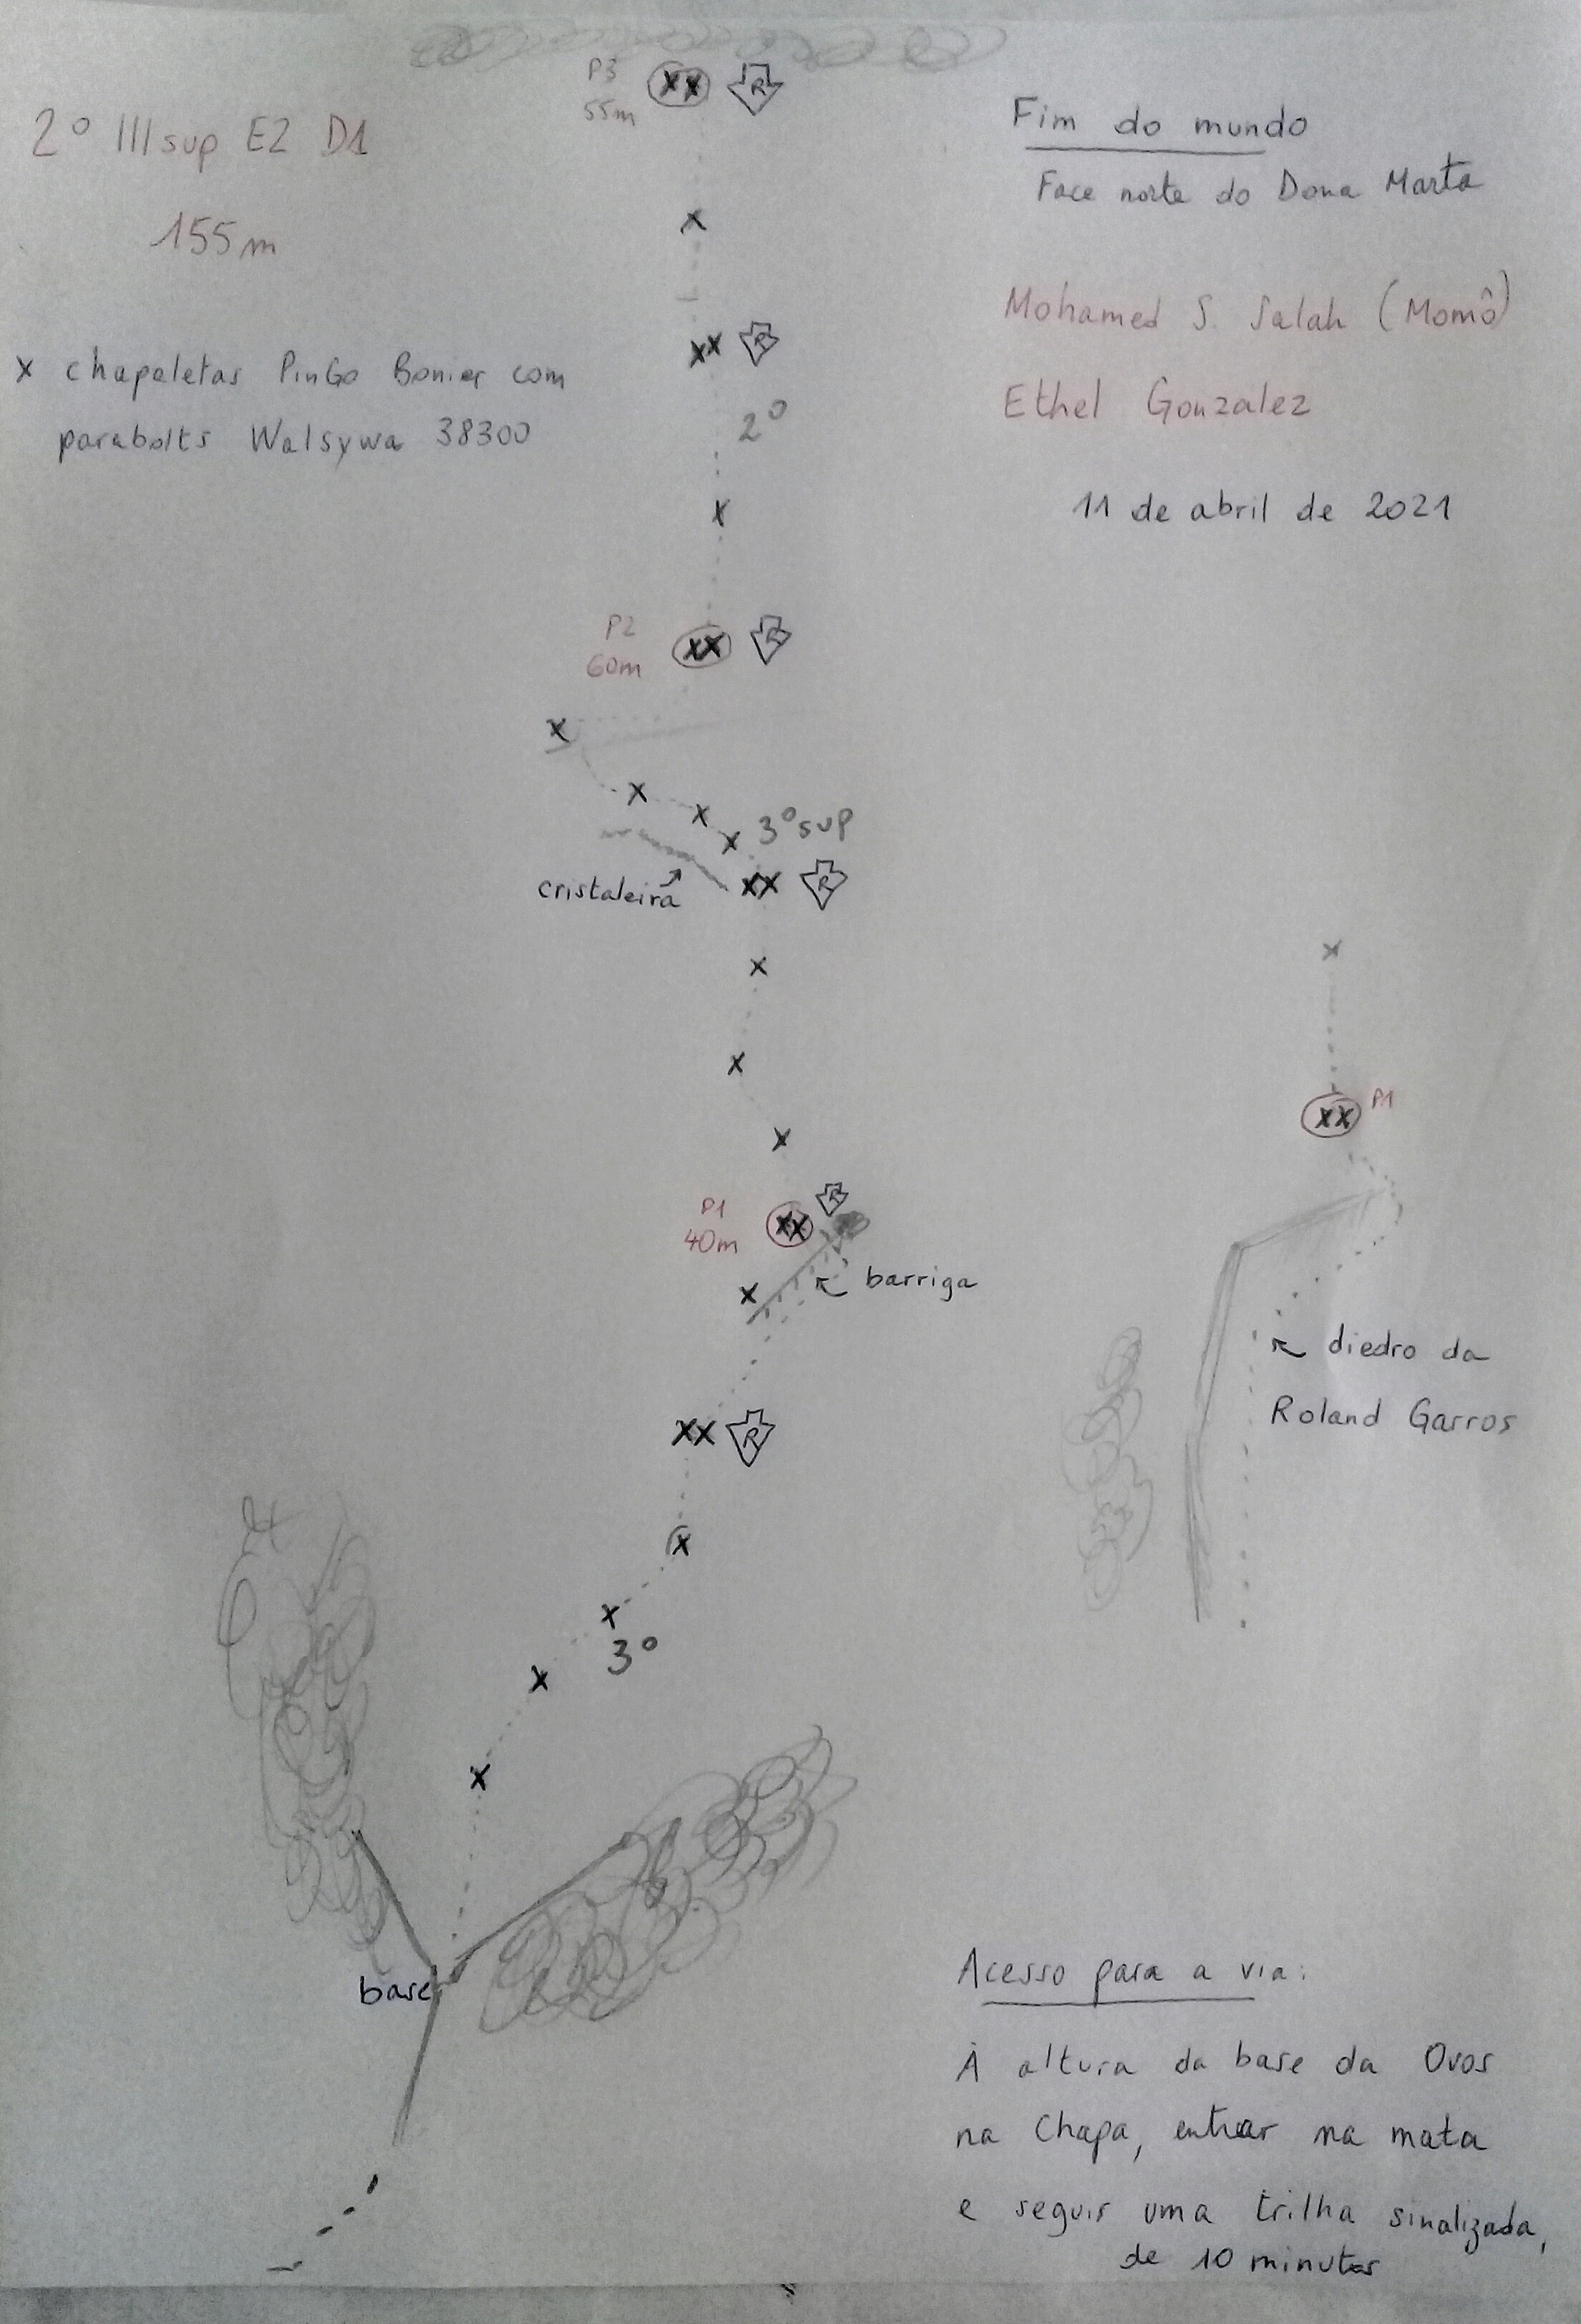 P3
55m
XX R
2º IIIsup E2 D1
155m
Fim do mundo
Face norte do Dona Marta
Mohamed S. Salah (Momô)
Ethel Gonzalez
11 de abril de 2021
x chapeletas PinGo Bonier com
parabolts Walsywa 38300
x
xx R
2º
x
P2
60m
xx R
x
x
x
x 3ºsup
cristaleira
xx R
x
x
x
P1
40m
xx R
x
barriga
xx R
x
x
3º
x
x
base
x
xx P1
diedro da
Roland Garros
Acesso para a via:
À altura da base da Ovos
na Chapa, entrar na mata
e seguir uma trilha sinalizada,
de 10 minutos